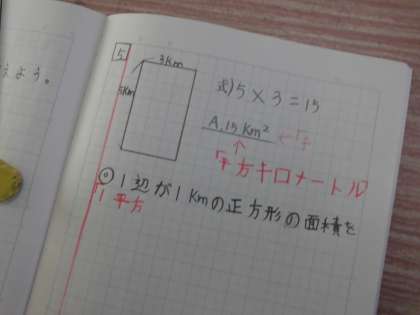 えよう。
5
3Km
5Km
式)5×3=15
A.15Km²
平方キロメートル
◎1辺が1Kmの正方形の面積を
1平方